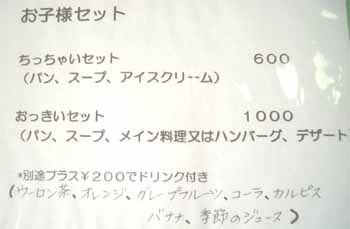 お子様セット
ちっちゃいセット 600
（パン、スープ、アイスクリーム）
おっきいセット 1000
（パン、スープ、メイン料理又はハンバーグ、デザート
*別途プラス¥200でドリンク付き
(ウーロン茶、オレンジ、グレープフルーツ、コーラ、カルピス
バナナ、季節のジュース)